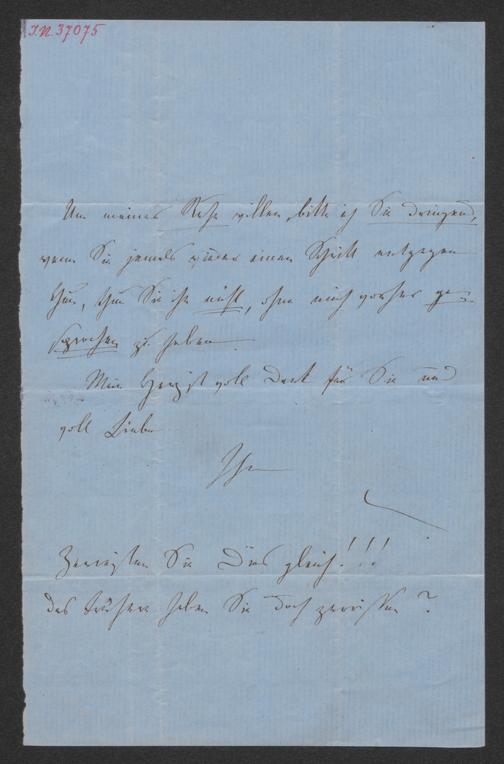 I.N. 37075
Um meiner Ruhe willen, bitte ich Sie dringend,
wenn Sie jemals wieder einen Schritt entgegen
thun, thun Sie ihn nicht, ohne mich vorher ge-
sprochen zu haben.
Mein Herz ist voll Dank für Sie und
voll Liebe
Ihr
Zerreißen Sie Dies gleich!!!
das frühere haben Sie doch zerrissen?